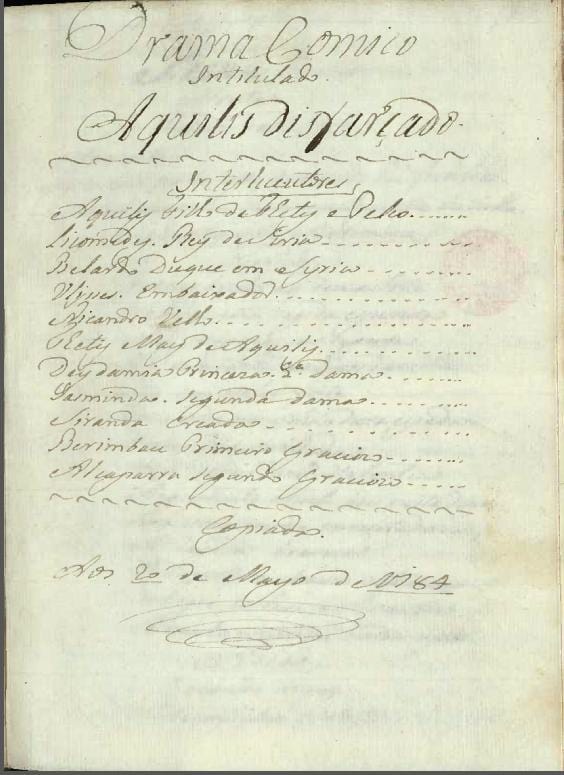 Drama Comico
Intitulado.
Aquilis disfarçado.
Interlucutores,
Aquilis filho de Tety e Peleo.......
Licomedes. Rey de Siria..........
Belardo Duque em Syria..........
Ulyses. Embaixador..............
Nicandro Velho..................
Tety May de Aquilis.............
Deydamia Princeza. Dama........
Jasminda. segunda dama.........
Siranda creada..................
Berimbau Primeiro Gracioso.......
Alcaparra segundo Gracioso.....
Copiado.
Aos 20 de Mayo de 1784